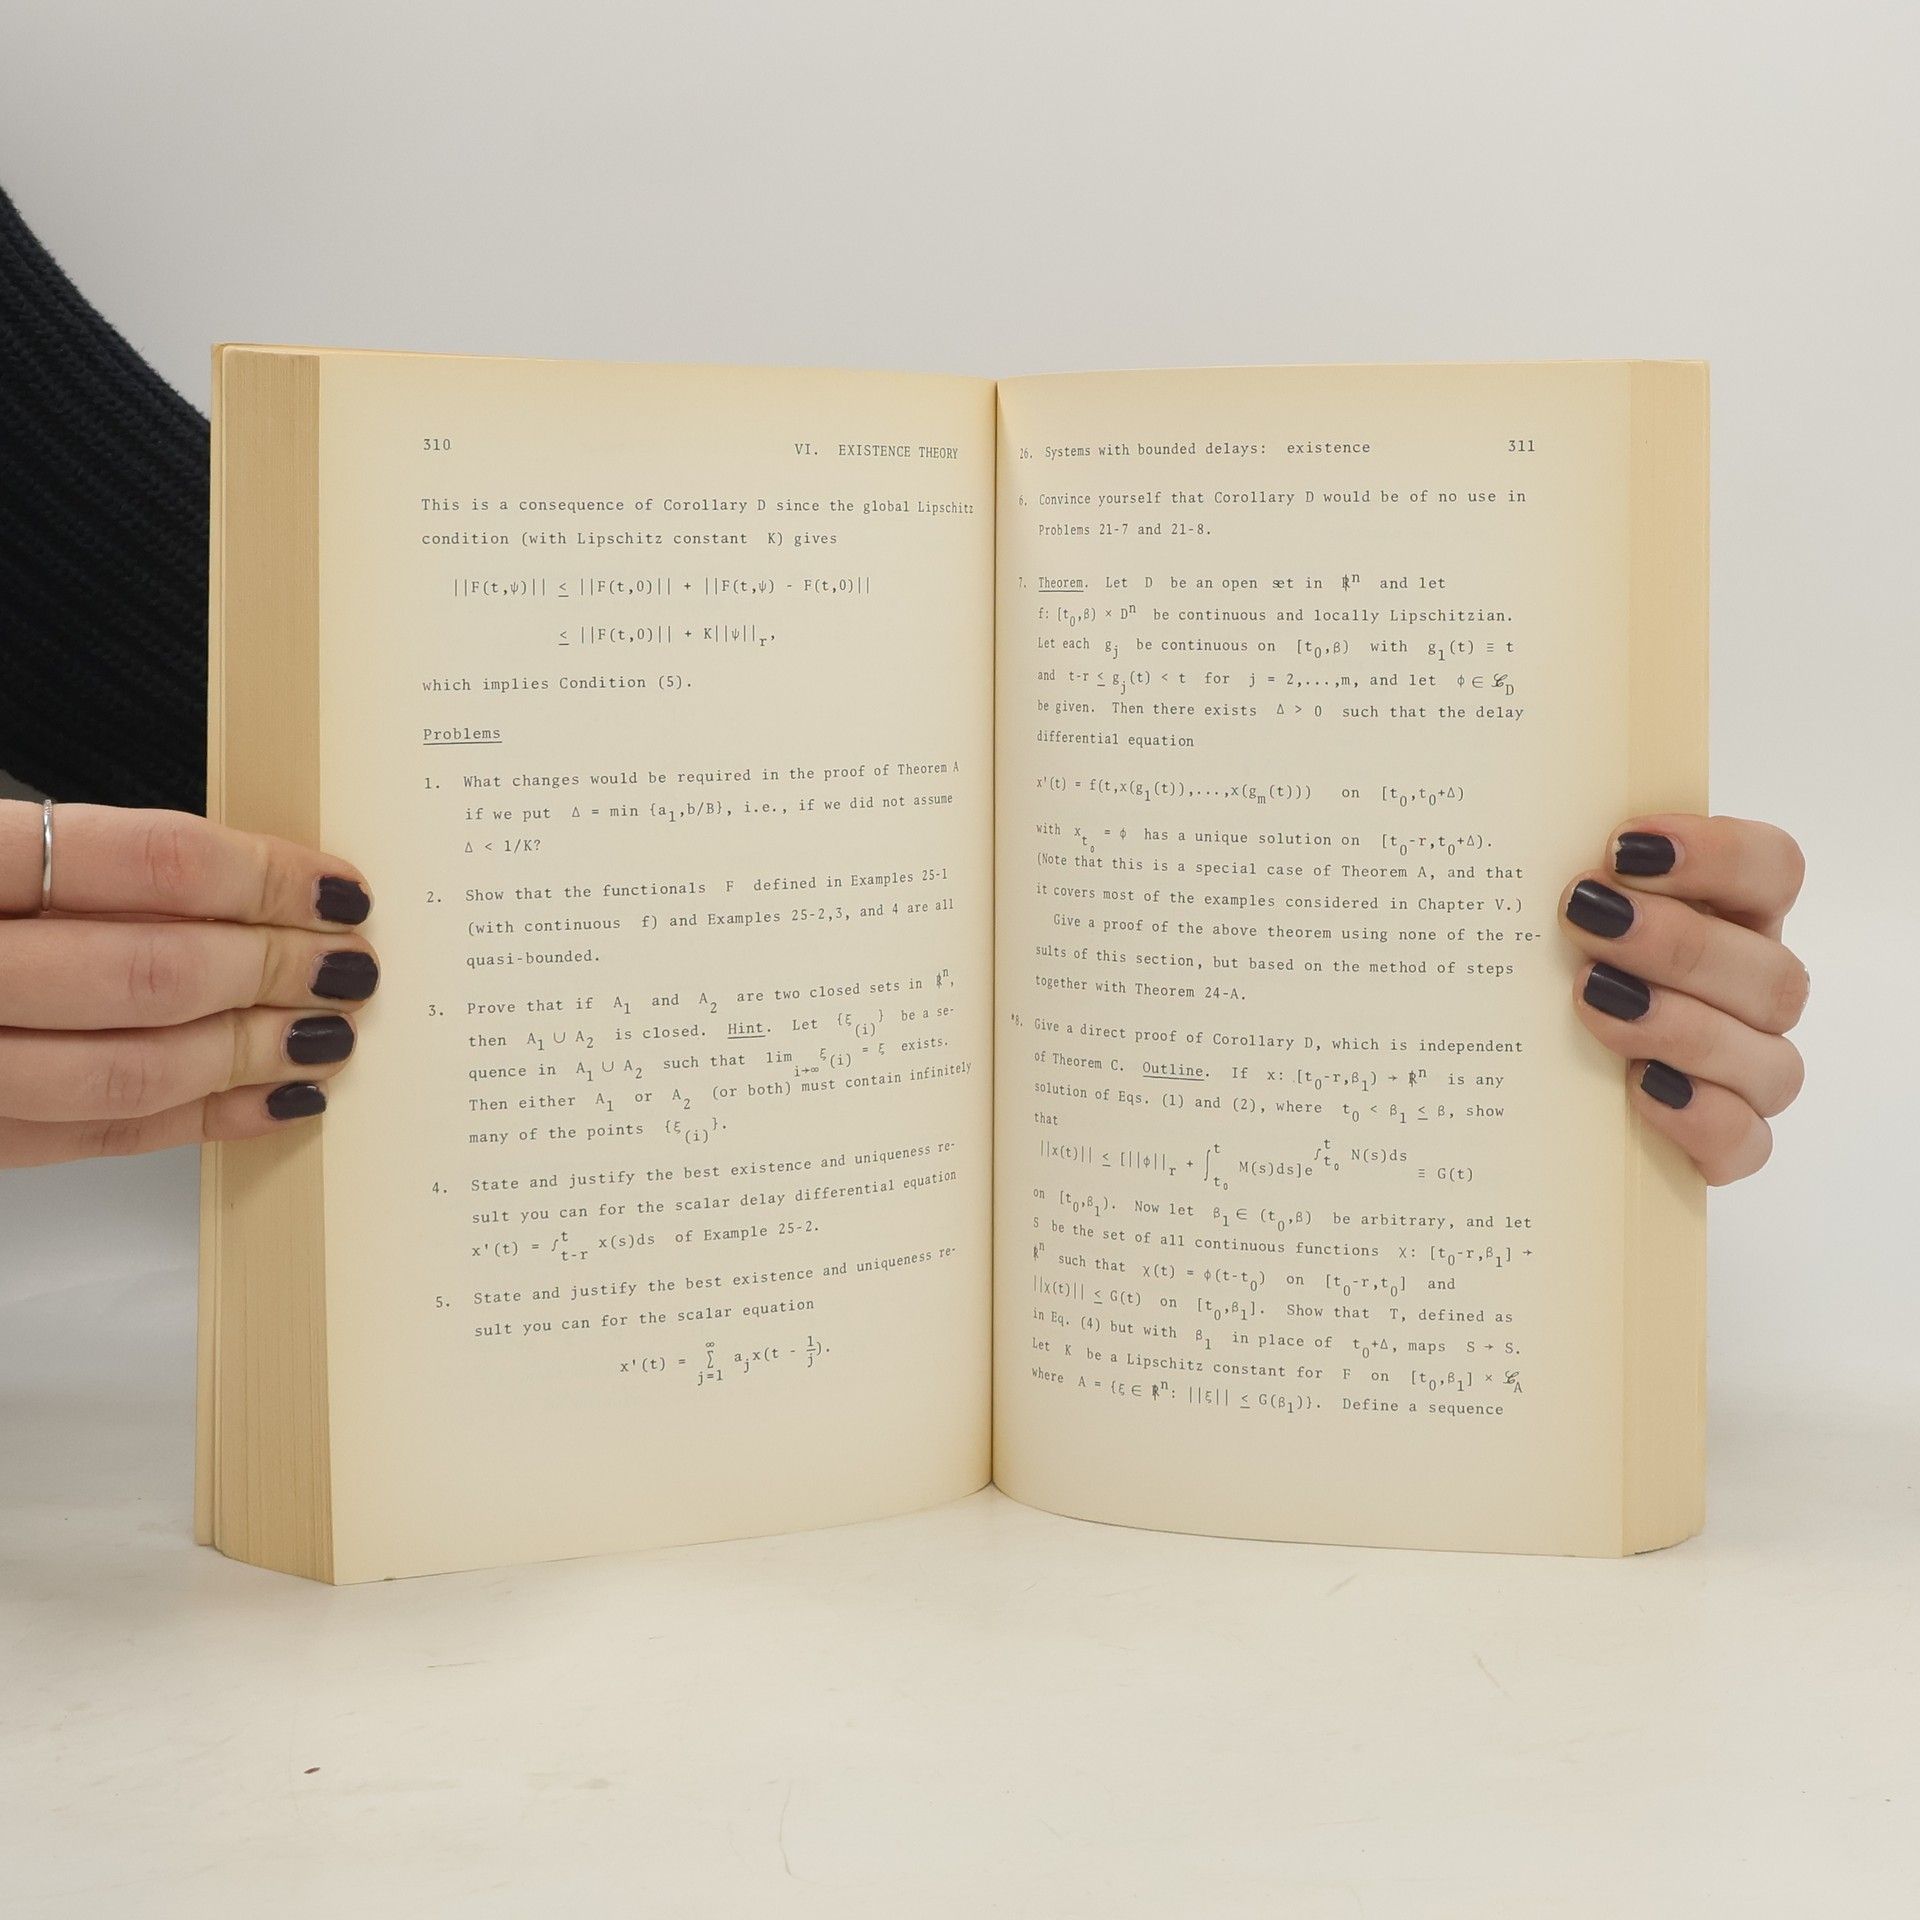 310 VI. EXISTENCE THEORY
This is a consequence of Corollary D since the global Lipschitz
condition (with Lipschitz constant K) gives
||F(t,ψ)|| ≤ ||F(t,0)|| + ||F(t,ψ) - F(t,0)||
≤ ||F(t,0)|| + K||ψ||_r,
which implies Condition (5).
Problems
1. What changes would be required in the proof of Theorem A
if we put Δ = min {a₁,b/B}, i.e., if we did not assume
Δ < 1/K?
2. Show that the functionals F defined in Examples 25-1
(with continuous f) and Examples 25-2,3, and 4 are all
quasi-bounded.
3. Prove that if A₁ and A₂ are two closed sets in ℝⁿ,
then A₁ ∪ A₂ is closed. Hint. Let {ξ_(i)} be a se-
quence in A₁ ∪ A₂ such that lim_{i→∞} ξ_(i) = ξ exists.
Then either A₁ or A₂ (or both) must contain infinitely
many of the points {ξ_(i)}.
4. State and justify the best existence and uniqueness re-
sult you can for the scalar delay differential equation
x'(t) = ∫_{t-r}^{t} x(s)ds of Example 25-2.
5. State and justify the best existence and uniqueness re-
sult you can for the scalar equation
x'(t) = Σ_{j=1}^{∞} a_j x(t - 1/j).
26. Systems with bounded delays: existence 311
6. Convince yourself that Corollary D would be of no use in
Problems 21-7 and 21-8.
7. Theorem. Let D be an open set in ℝⁿ and let
f: [t₀,β) × Dⁿ be continuous and locally Lipschitzian.
Let each g_j be continuous on [t₀,β) with g₁(t) ≡ t
and t-r ≤ g_j(t) < t for j = 2,...,m, and let φ ∈ 𝒞_D
be given. Then there exists Δ > 0 such that the delay
differential equation
x'(t) = f(t,x(g₁(t)),...,x(g_m(t))) on [t₀,t₀+Δ)
with x_{t₀} = φ has a unique solution on [t₀-r,t₀+Δ).
(Note that this is a special case of Theorem A, and that
it covers most of the examples considered in Chapter V.)
Give a proof of the above theorem using none of the re-
sults of this section, but based on the method of steps
together with Theorem 24-A.
*8. Give a direct proof of Corollary D, which is independent
of Theorem C. Outline. If x: [t₀-r,β₁) → ℝⁿ is any
solution of Eqs. (1) and (2), where t₀ < β₁ ≤ β, show
that
||x(t)|| ≤ [||φ||_r + ∫_{t₀}^{t} M(s)ds]e^{∫_{t₀}^{t} N(s)ds} ≡ G(t)
on [t₀,β₁). Now let β₁ ∈ (t₀,β) be arbitrary, and let
S be the set of all continuous functions χ: [t₀-r,β₁] →
ℝⁿ such that χ(t) = φ(t-t₀) on [t₀-r,t₀] and
||χ(t)|| ≤ G(t) on [t₀,β₁]. Show that T, defined as
in Eq. (4) but with β₁ in place of t₀+Δ, maps S → S.
Let K be a Lipschitz constant for F on [t₀,β₁] × 𝒞_A
where A = {ξ ∈ ℝⁿ: ||ξ|| ≤ G(β₁)}. Define a sequence